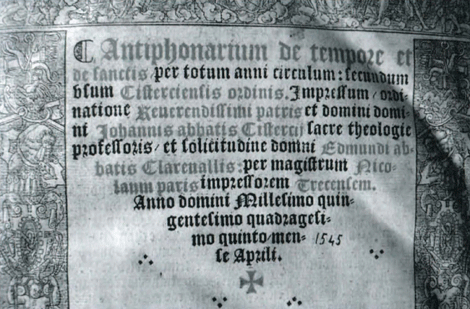 ¶ Antiphonarium de tempore et
de sanctis / per totum anni circulum: secundum
vsum Cisterciensis ordinis. Impressum / ordi
natione Reuerendissimi patris et domini domi-
ni Johannis abbatis Cistercij sacre theologie
professoris / et solicitudine domni Edmundi ab-
batis Clareuallis: per magistrum Nico-
laum paris impressorem Trecensem.
Anno domini Millesimo quin-
gentesimo quadragesi-
mo quinto / men- 1545
se Aprili.